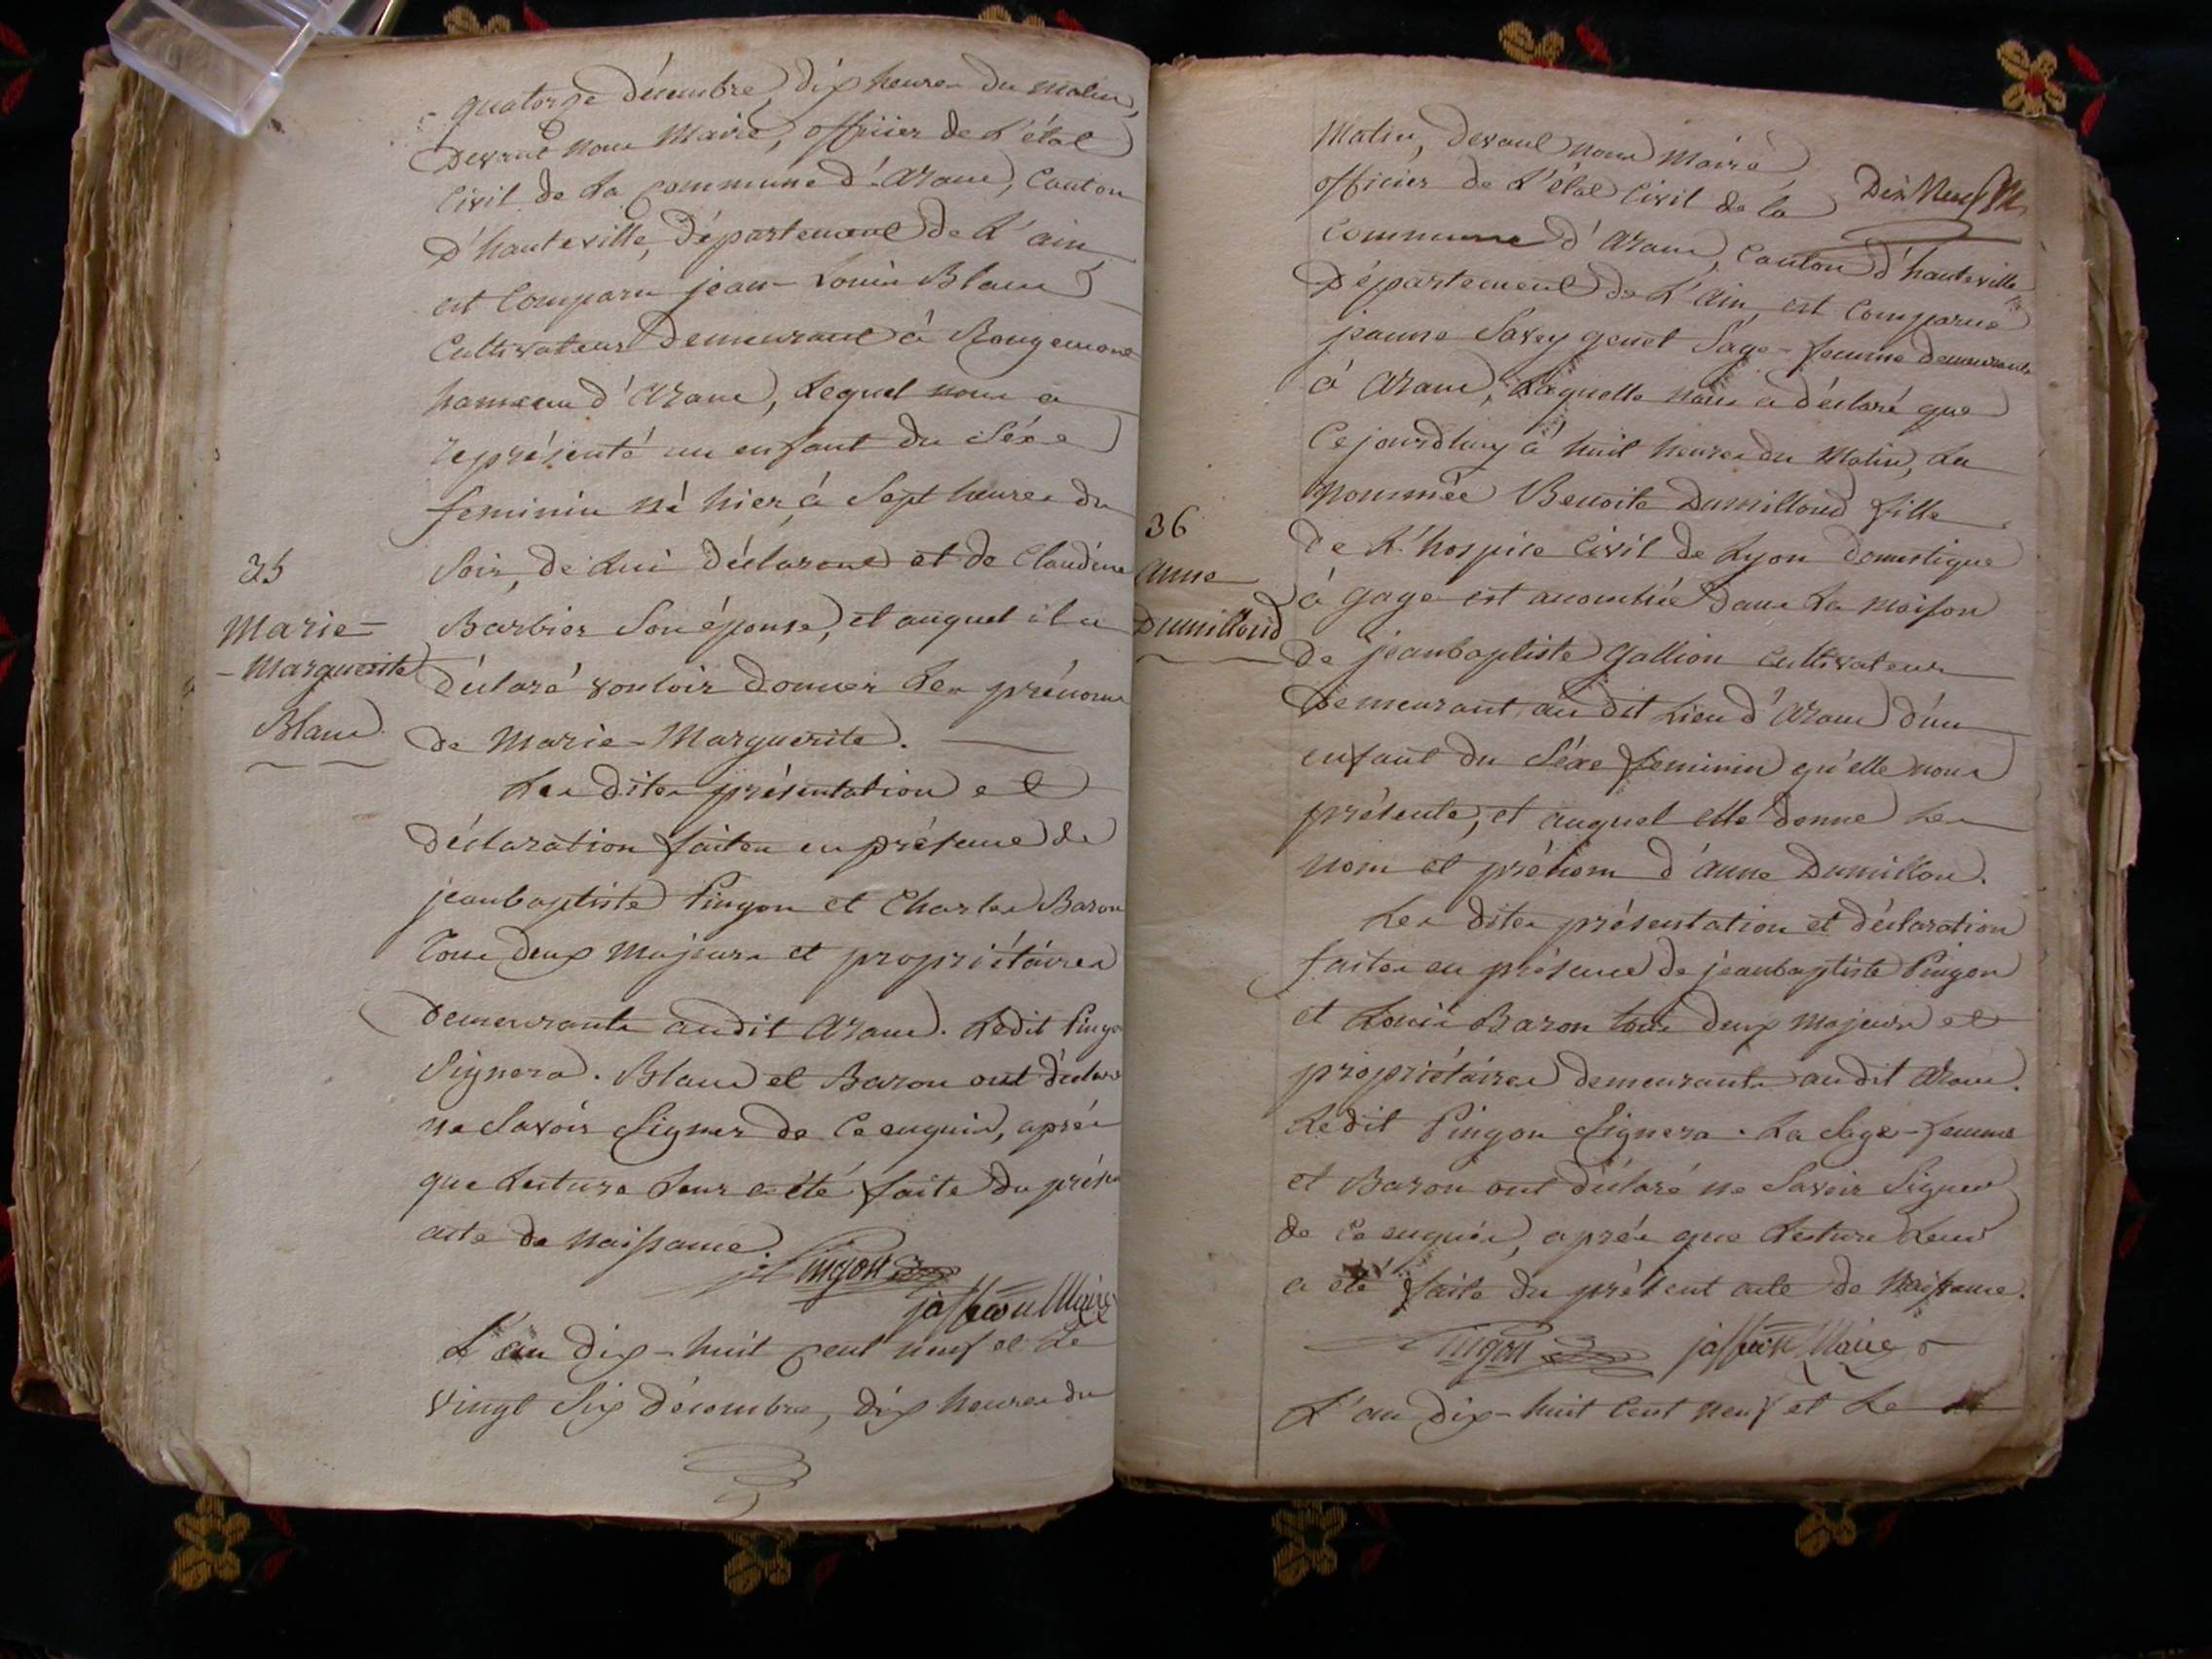 quatorze décembre, dix heures du matin,
Devant nous Maire, officier de L'état
Civil de La commune d'Aranc, Canton
D'hauteville, Département de L'ain,
est Comparu jean-Louis Blanc
Cultivateur Demeurant à Rougemont
hameau d'Aranc, Lequel nous a
représenté un enfant du Séxe
feminin né hier, à Sept heures du
35
Soir, de Lui déclarant et de Claudine
Marie-
-Marguerite
Blanc
Barbier Son épouse, et auquel il a
déclaré vouloir donner Les prénoms
de Marie-Marguerite.
Les dites présentation et
déclaration faites en présence de
jeanbaptiste Pingon et Charles Baron
Tous deux Majeurs et propriétaires
demeurants audit Aranc. Ledit Pingon
Signera. Blanc et Baron ont déclaré
ne Savoir Signer de Ce enquis, après
que Lecture Leur a été faite du présent
acte de Naissance.
Pingon
Maire
L'an Dix-huit Cent neuf et Le
vingt Six Décembre, dix heures du
Matin, Devant nous Maire,
officier de L'état Civil de la
Commune d'Aranc, Canton d'hauteville
Département de L'ain, est Comparue
jeanne Savey genet Sage-femme demeurante
à Aranc, Laquelle nous a déclaré que
Cejourdhuy à huit heures du Matin, La
nommée Benoite Dumilloud fille
36
Anne
Dumilloud
de L'hospice Civil de Lyon Domestique
à gage est accouchée dans La Maison
de jeanbaptiste Gallion Cultivateur
Demeurant au dit Lieu d'Aranc d'un
enfant du Séxe feminin qu'elle nous
présente, et auquel elle donne Les
nom et prénom d'anne Dumillou.
Les dites présentation et déclaration
faites en présence de jeanbaptiste Pingon
et Louis Baron tous deux Majeurs et
propriétaires demeurants audit Aranc.
Ledit Pingon Signera. La Sage-femme
et Baron ont déclaré ne Savoir Signer
de Ce enquis, après que Lecture Leur
a été faite du présent acte de Naissance.
Pingon Maire
L'an Dix-huit Cent neuf et Le